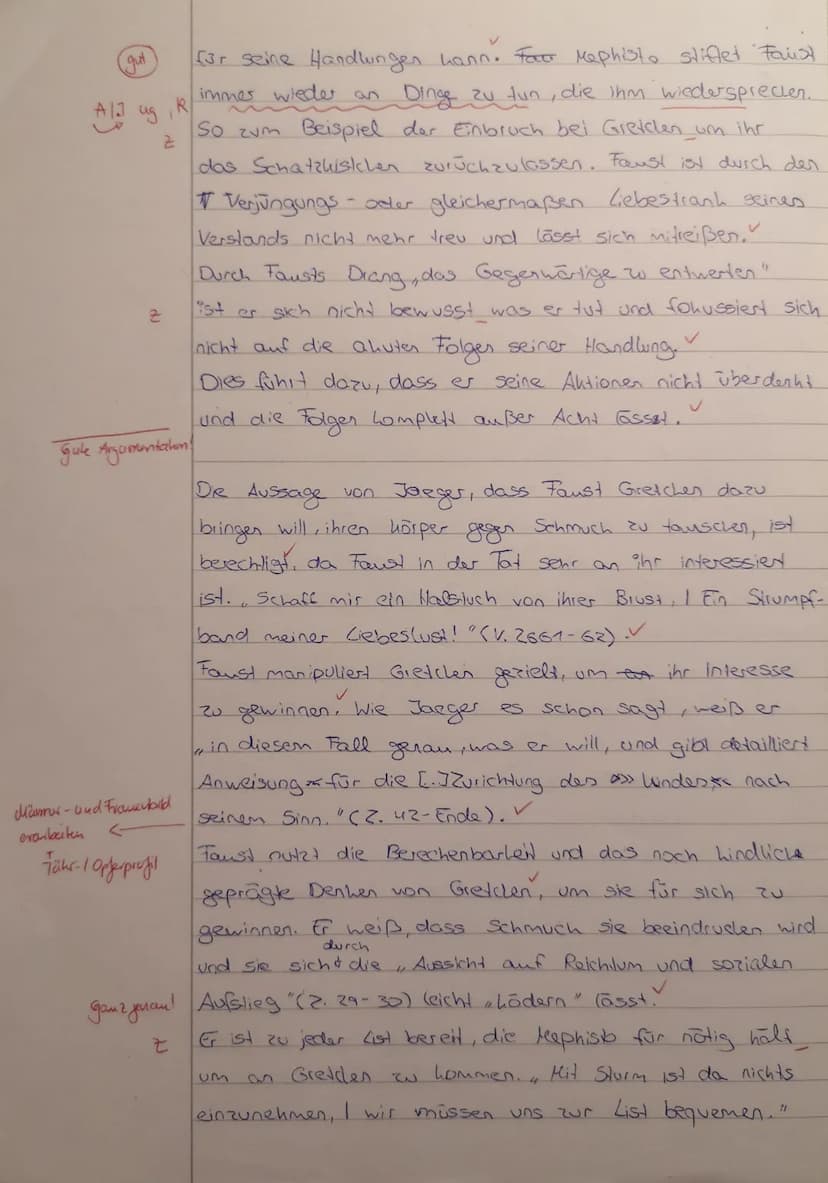 gut
für seine Handlungen kann. Mephisto stiftet Faust
immer wieder an Dinge zu tun, die ihm wiedersprechen.
A/I ug, R
So zum Beispiel der Einbruch bei Gretchen um ihr
Z
das Schatzkistchen zurückzulassen. Faust ist durch den
Verjüngungs- oder gleichermaßen Liebestrank seines
Verstands nicht mehr treu und lässt sich mitreißen.
Durch Fausts Drang „das Gegenwärtige zu entwerten"
ist er sich nicht bewusst was er tut und fokussiert sich
Z
nicht auf die akuten Folgen seiner Handlung.
Dies führt dazu, dass er seine Aktionen nicht überdenkt
und die Folgen komplett außer Acht lässt.
Gute Argumentation!
Die Aussage von Jaeger, dass Faust Gretchen dazu
bringen will, ihren Körper gegen Schmuck zu tauschen, ist
berechtigt, da Faust in der Tat sehr an ihr interessiert
ist. „Schaff mir ein Halstuch von ihrer Brust, / Ein Strumpf-
band meiner Liebeslust!" (V. 2661-62).
Faust manipuliert Gretchen gezielt, um ihr Interesse
zu gewinnen. Wie Jaeger es schon sagt, weiß er
„in diesem Fall genau, was er will, und gibt detailliert
Anweisung für die [..] Zurichtung des Kindes nach
seinem Sinn." (Z. 42-Ende).
Männer- und Frauenbild
erarbeiten
Täter-/Opferprofil
Faust nutzt die Berechenbarkeit und das noch kindliche
geprägte Denken von Gretchen, um sie für sich zu
gewinnen. Er weiß, dass Schmuck sie beeindrucken wird
und sie sich durch die „Aussicht auf Reichtum und sozialen
Aufstieg" (Z. 29-30) leicht „ködern" lässt.
Ganz genau!
Er ist zu jeder List bereit, die Mephisto für nötig hält
Z
um an Gretchen zu kommen. „Mit Sturm ist da nichts
einzunehmen, / wir müssen uns zur List bequemen."